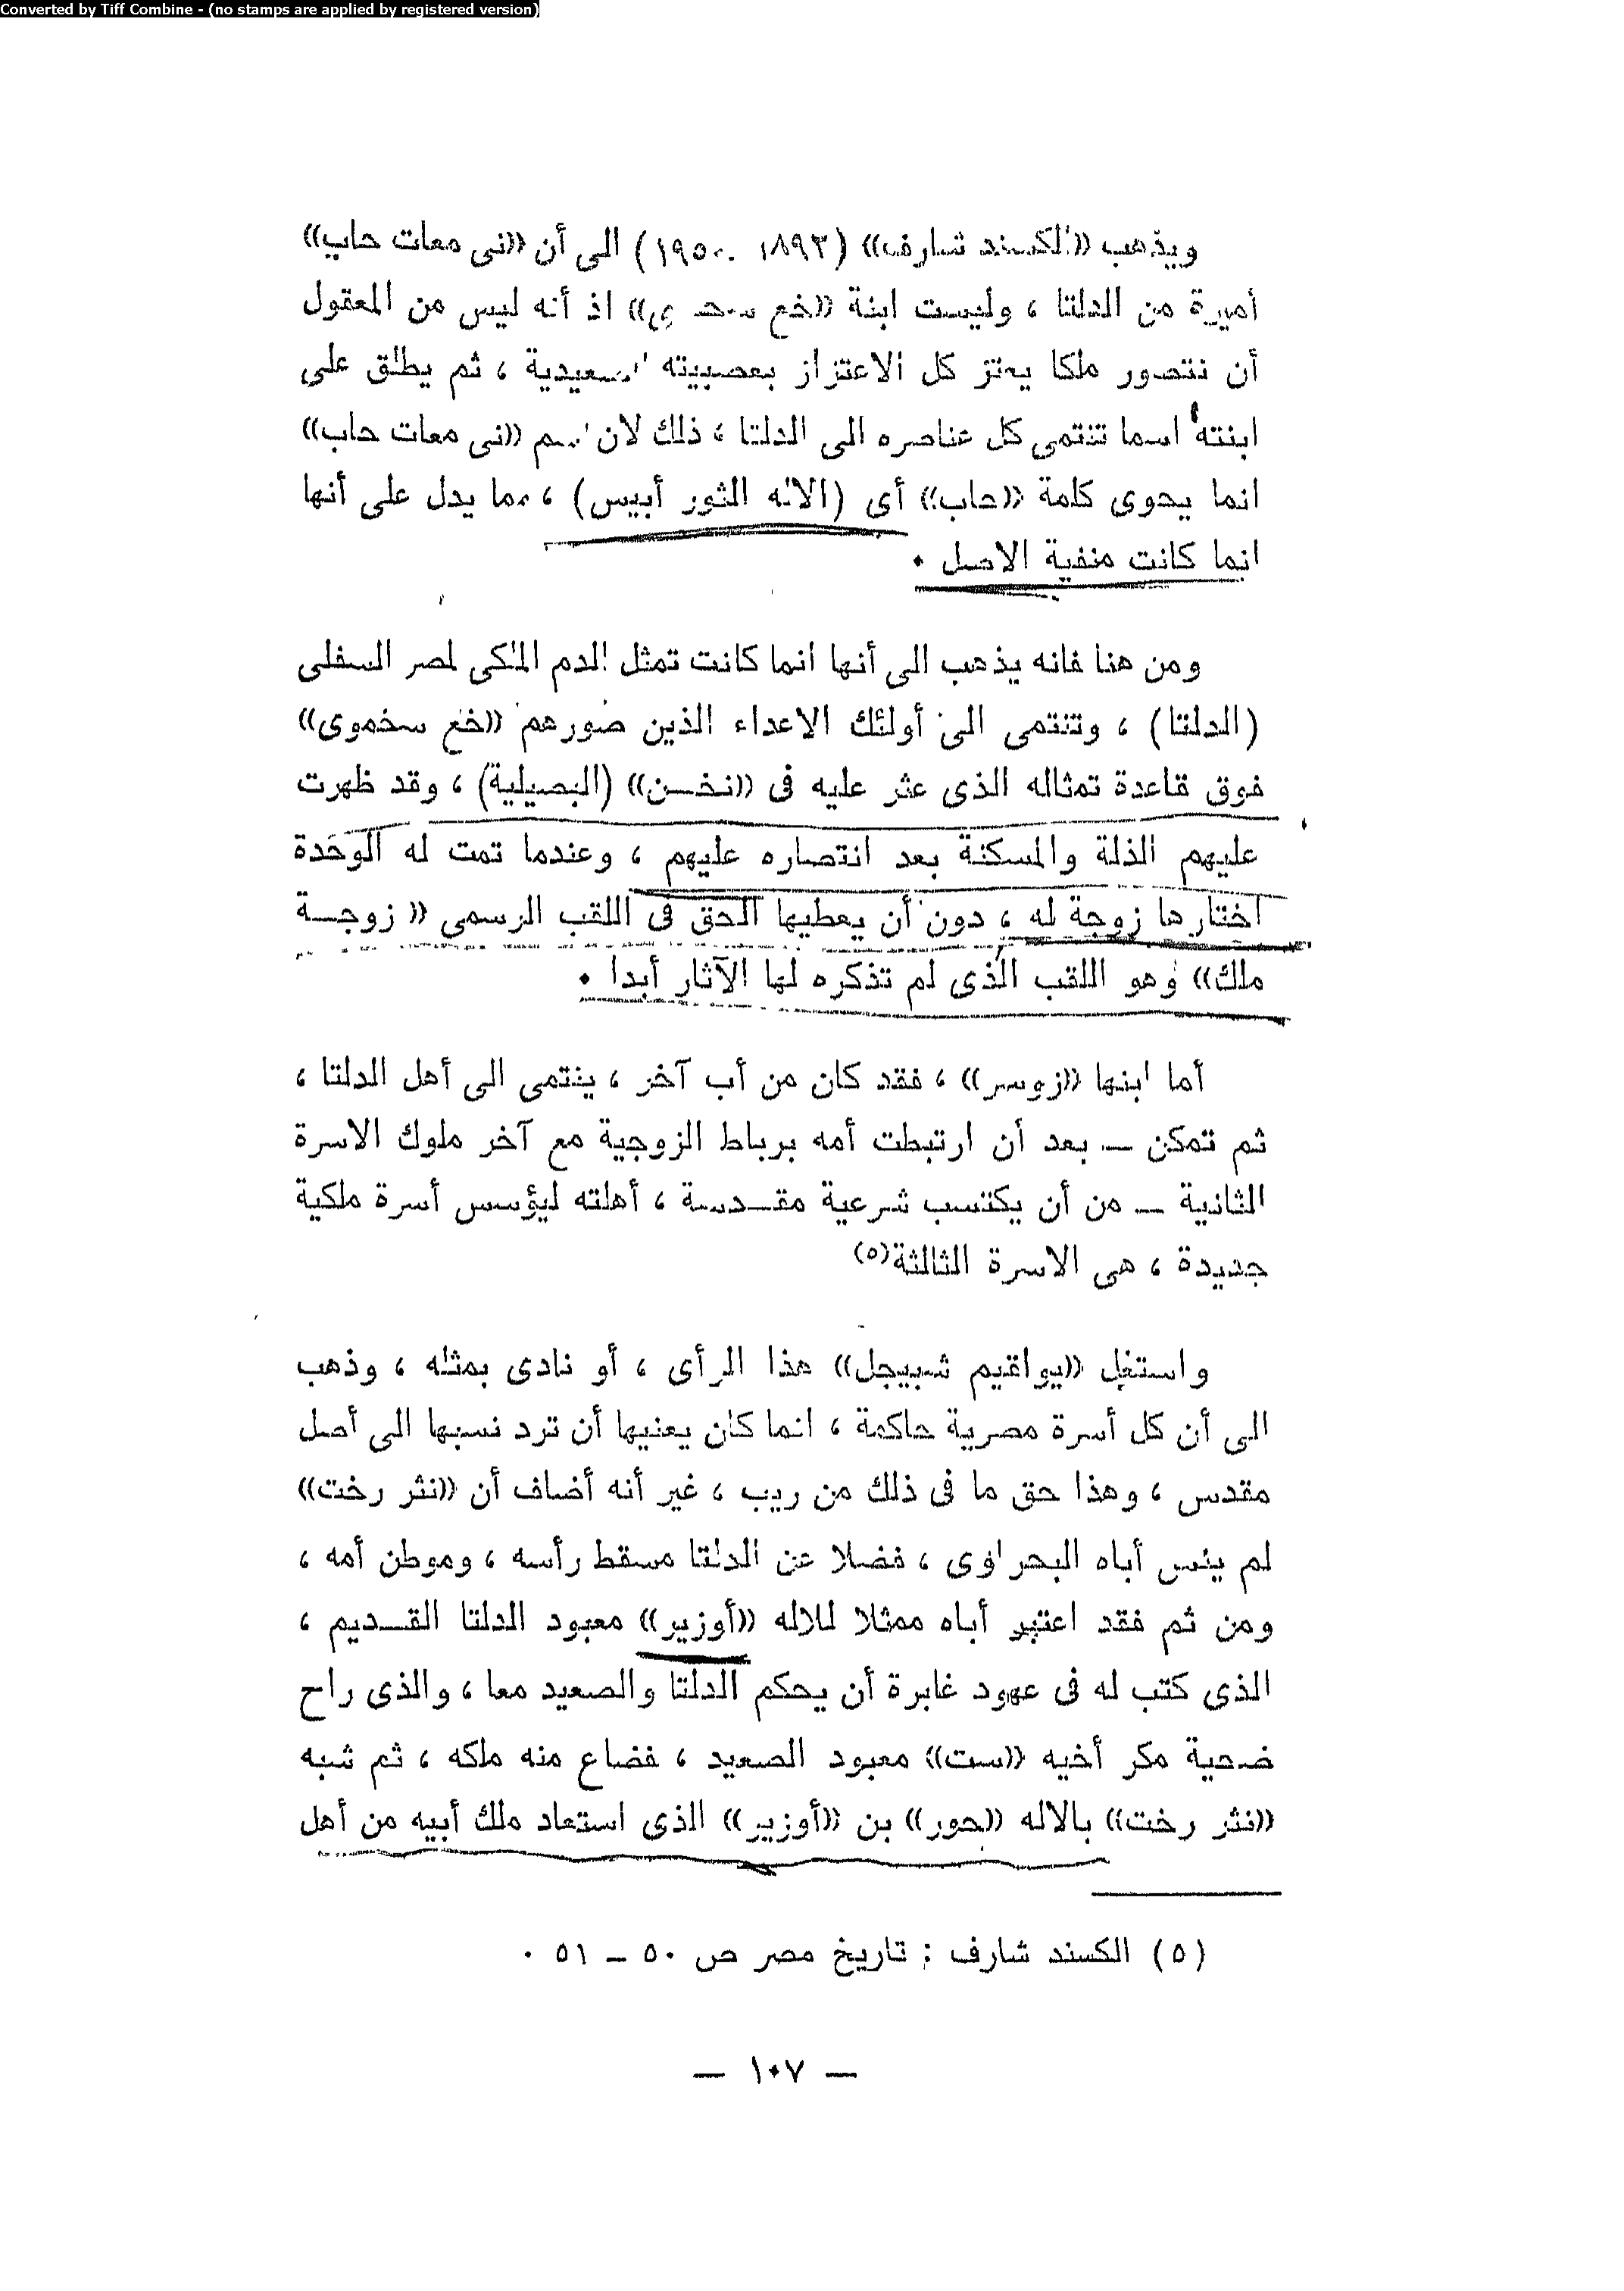 Converted by Tiff Combine - (no stamps are applied by registered version)
ويذهب «الكسند شارف» (١٨٩٣ - ١٩٥٠) الى أن «نى معات حاب»
أميرة من الدلتا ، وليست ابنة «خع اذ أنه ليس من المعقول
أن نتصور ملكا يعتز كل الاعتزاز بعصبيته الصعيدية ، ثم يطلق على
ابنته اسما تنتمى كل عناصره الى الدلتا ، ذلك لان اسم «نى معات حاب»
انما يحوى كلمة «حاب» أى (الاله الثور أبيس) ، مما يدل على أنها
انما كانت منفية الاصل ٠
ومن هنا فانه يذهب الى أنها انما كانت تمثل الدم الملكى لمصر السفلى
(الدلتا) ، وتنتمى الى أولئك الاعداء الذين صورهم «خع سخموى»
فوق قاعدة تمثاله الذى عثر عليه فى «نخسن» (البصيلية) ، وقد ظهرت
عليهم الذلة والمسكنة بعد انتصاره عليهم ، وعندما تمت له الوحدة
اختارها زوجة له ، دون أن يعطيها الحق فى اللقب الرسمى « زوجة
ملك» وهو اللقب الذى لم تذكره لها الآثار أبدا ٠
أما ابنها «زوسر» ، فقد كان من أب آخر ، ينتمى الى أهل الدلتا ،
ثم تمكن — بعد أن ارتبطت أمه برباط الزوجية مع آخر ملوك الاسرة
الثانية — من أن يكتسب شرعية مقدسة ، أهلته ليؤسس أسرة ملكية
جديدة ، هى الاسرة الثالثة(٥)
واستغل «يواقيم شبيجل» هذا الرأى ، أو نادى بمثله ، وذهب
الى أن كل أسرة مصرية حاكمة ، انما كان يعنيها أن ترد نسبها الى أصل
مقدس ، وهذا حق ما فى ذلك من ريب ، غير أنه أضاف أن «نثر رخت»
لم ينس أباه البحراوى ، فضلا عن الدلتا مسقط رأسه ، وموطن أمه ،
ومن ثم فقد اعتبر أباه ممثلا للاله «أوزير» معبود الدلتا القديم ،
الذى كتب له فى عهود غابرة أن يحكم الدلتا والصعيد معا ، والذى راح
ضحية مكر أخيه «ست» معبود الصعيد ، فضاع منه ملكه ، ثم شبه
«نثر رخت» بالاله «حور» بن «أوزير» الذى استعاد ملك أبيه من أهل
(٥) الكسند شارف : تاريخ مصر ص ٥٠ – ٥١ ٠
— ١٠٧ —